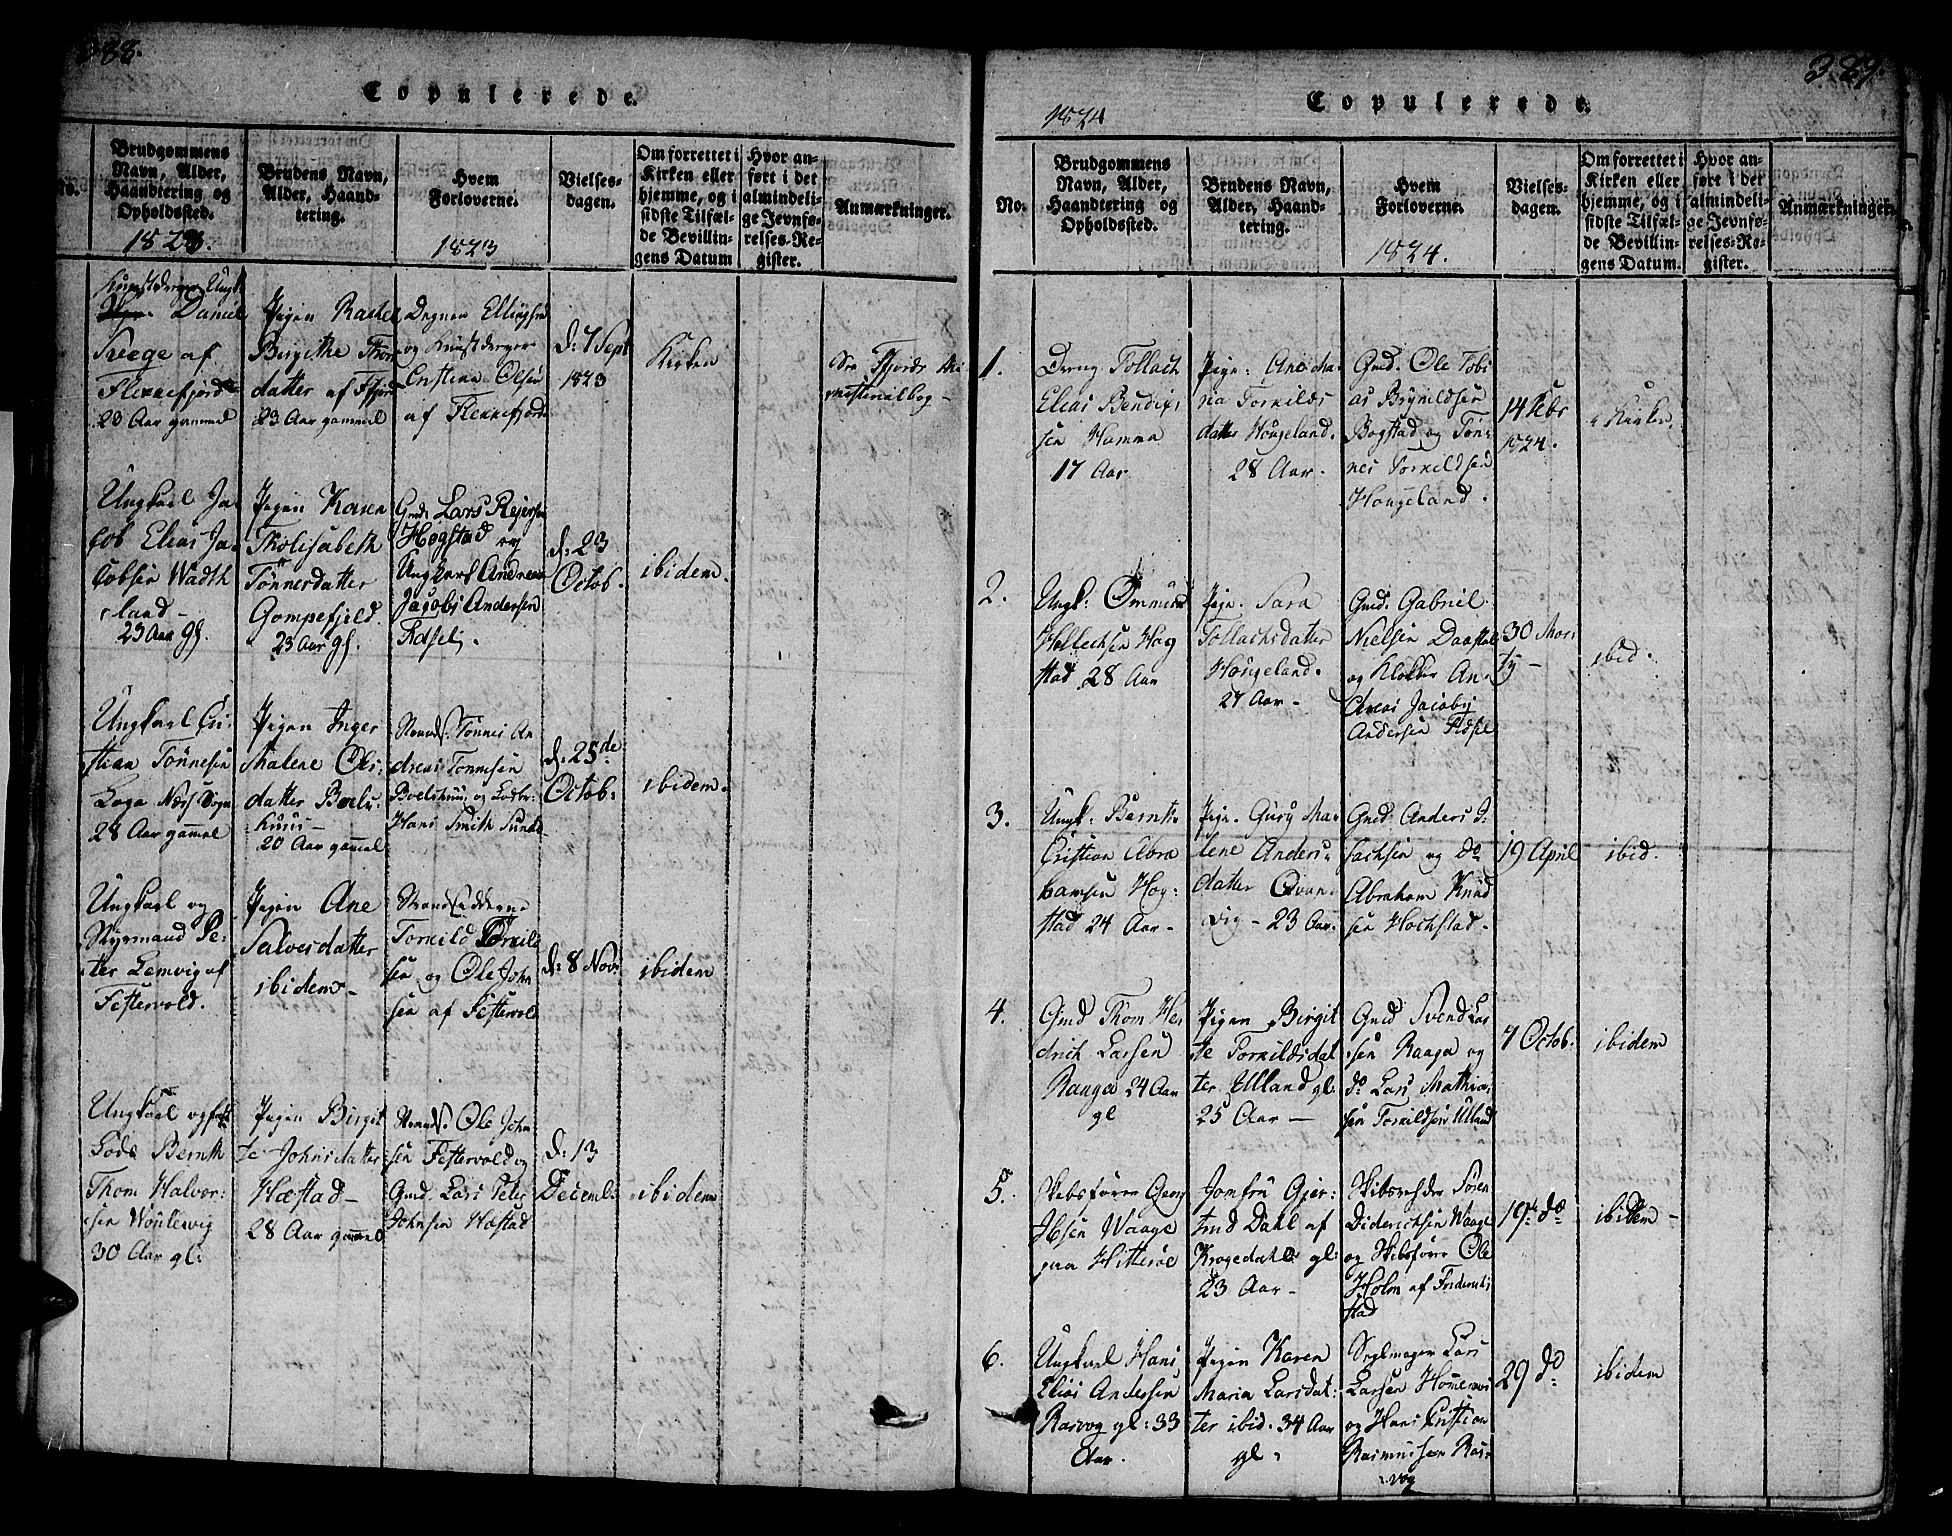 388.
Copulerede.
No.
Brudgommens
Navn, Alder,
Haandtering og
Opholdssted.
1823.
Brudens Navn,
Alder, Haand-
tering.
Hvem
Forloverne.
1823
Vielses-
dagen.
Om forrettet i
Kirken eller
hjemme, og i
sidste Tilfæl-
de Bevillin-
gens Datum
Hvor an-
ført i det
almindeli-
ge Jevnfø-
relses-Re-
gister.
Anmærkninger.
Daniel
af
Flekkefjord
23 Aar gammel
Pigen Rachel
Birgithe Thor
datter af Fjord
23 Aar gammel
Degnen Ellingsen
og
Cristian Olsen
af Flekkefjord
d: 7 Sept
1823
Kirken
See Fjords Mi
nisterialbog -
Ungkarl Ja
cob Elias Ja-
cobsen Wadth
land -
23 Aar gl.
Pigen Karen
Tholisabeth
Tønnesdatter
Gompefjeld.
23 Aar gl.
Gmd. Lars Rejersen
Høgstad og
Ungkarl Andreas
Jacobi Andersen
Fidsel.
d: 23
Octob.
ibidem.
Ungkarl Cri-
stian Tønnesen
Loga Næss Sogn
28 Aar gamel
Pigen Inger
Malene Ols-
datter Boels-
huus -
20 Aar gamel
Strands: Tønnes An
dreas Tønnesen
Boelshuus og
Hans Smith Sunde
d. 25de
Octob:
ibidem.
Ungkarl og
Styrmand Pe-
ter Lemvig af
Festervold.
Pigen Ane
Salvesdatter
ibidem -
Strandsidderne
Torkild Torkild
sen og Ole John
sen af Festervold
d: 8 Nov:
ibidem
Ungkarl og fast
Lods Bernth
Thom Halvor:
sen
30 Aar gl:
Pigen Birgit
te Johnsdatter
Hæstad -
28 Aar gammel
Strands. Ole John-
sen Festervold og
Gmd. Lars Peter
Johnsen Hæstad
d: 13
Decemb:
ibidem
389.
Copulerede.
1824
No.
Brudgommens
Navn, Alder,
Haandtering og
Opholdssted.
Brudens Navn,
Alder, Haand-
tering.
Hvem
Forloverne.
1824.
Vielses-
dagen.
Om forrettet i
Kirken eller
hjemme, og i
sidste Tilfæl-
de Bevillin-
gens Datum.
Hvor an-
ført i det
almindeli-
ge Jevnfø-
relses-Re-
gister.
Anmærkninger.
1.
Dreng Tollach
Elias Bendix
sen Hamma
17 Aar
Pige: Ane Ma-
ria Torkilds
datter Hougeland.
28 Aar.
Gmd. Ole Tobi
as Brynildsen
Bogstad og Tøn-
nes Torkildsen
Hougeland.
14 Febr
1824.
Kirken
2.
Ungk: Ommund
Hog
stad 28 Aar
Pige. Sara
Tollachsdatter
Hougeland.
27 Aar -
Gmd. Gabriel
Nielsen Daastøl
og Klokker An-
dreas Jacobij
Andersen Fidsel
30 Mar
ty -
ibid.
3.
Ungk: Bernt
Cristian Abra
hamsen Hog-
stad 24 Aar -
Pige. Gury Ma-
lene Anders-
datter Qvan-
vig - 23 Aar.
Gmd: Anders I-
sachsen og do
Abraham Knud
sen Hochstad.
19 April
ibid.
4.
Gmd Thom Hen
drich Larsen
Raaga 24 Aar
gl
Pigen Birgit
te Torkildsdat
ter Ulland gl:
25 Aar -
Gmd Svend Lar
sen Raaga og
do Lars Mathia-
sen Torkildsen Ulland
7 Octob:
ibidem
5.
Skibsfører Georg
Ibsen Waage
paa Hitterøe
Jomfru Gjer-
trud Dahl af
Krogedahl gl:
23 Aar -
Skibsrheder Søren
Diderichsen Waage
og Skibsfører Ole
Holm af Frideriks
stad
19de do
ibidem -
6.
Ungkarl Hans
Elias Andersen
Rasvog gl: 33
Aar.
Pigen Karen
Maria Larsdat:
ter ibid. 34 Aar
gl.
Seglmager Lars
Larsen
og Hans Cristian
Rasmussen Ras-
vog
29 do
ibidem